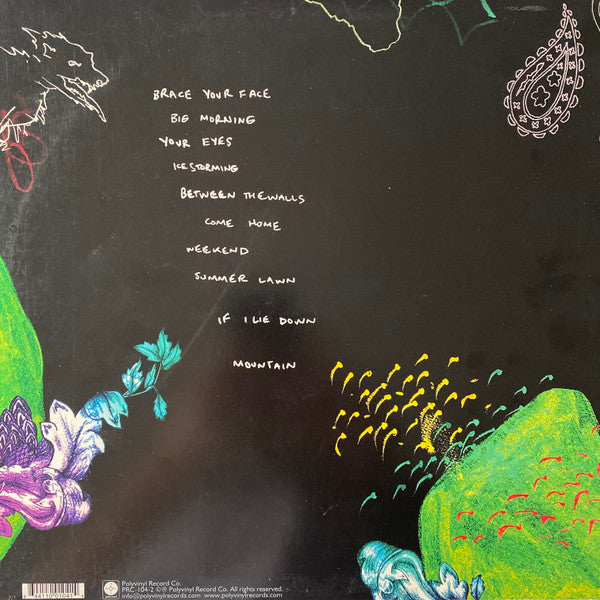 BRACE YOUR FACE
BIG MORNING
YOUR EYES
ICE STORMING
BETWEEN THE WALLS
COME HOME
WEEKEND
SUMMER LAWN
IF I LIE DOWN
MOUNTAIN
Polyvinyl Record Co.
PRC-104-2 ©℗ Polyvinyl Record Co. All rights reserved.
info@polyvinylrecords.com www.polyvinylrecords.com